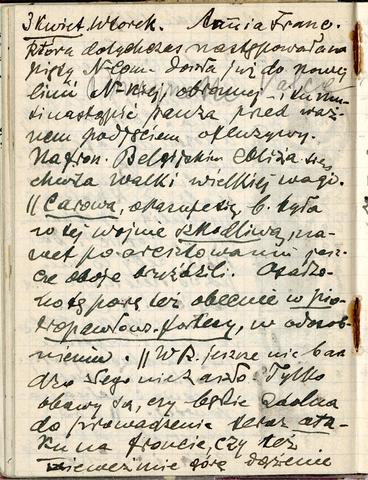 3 Kwiet. Wtorek. Armia Franc.
która dotychczas następowała na
pięty Niem. doszła już do nowej
linii N-kiej obronnej. Tu mu-
si nastąpić pauza przed waż-
nem podjęciem ofenzywy.
Na fron. Belgijskim zbliża się
chwila walki wielkiej wagi.
// Carowa, okazuje się, b. była
w tej wojnie szkodliwą, na-
wet po aresztowaniu jesz-
cze oboje bruździli. Osadzo-
no tę parę też obecnie w pio-
tropawłows. fortecy, w odosob-
nieniu. // W R. jeszcze nic bar
dzo złego nie zaszło. Tylko
obawy są, czy będzie zdolna
do prowadzenia teraz ata-
ku na froncie, czy też
nie weźmie górę dążenie